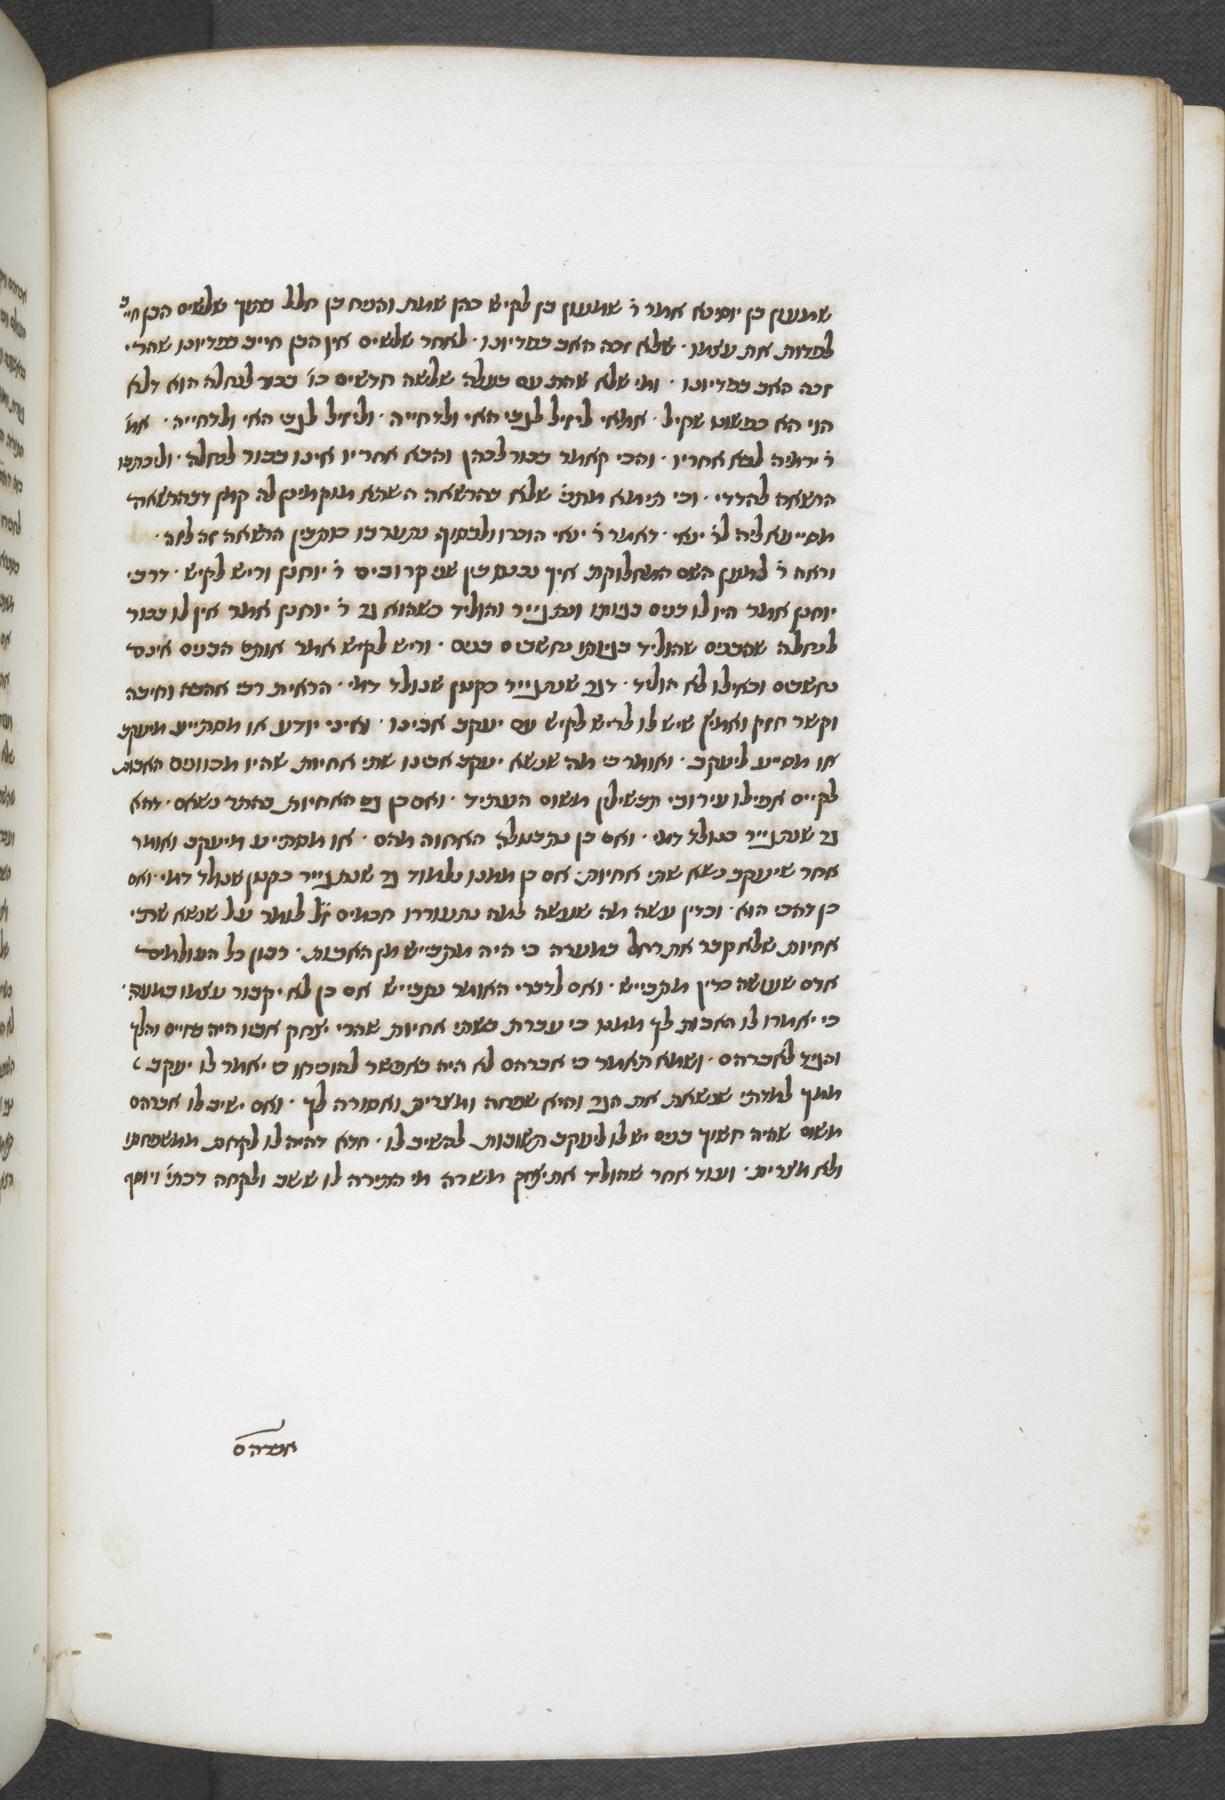 שמעון בן יוסינא אמר ר' שמעון בן לקיש כהן שמת והניח בן חלל בתוך שלשים הבן חייב
לפדות את עצמו · שלא זכה האב בפדיונו · לאחר שלשים אין הבן חייב בפדיונו שהרי
זכה האב בפדיונו · ומי שלא שהת עם בעלה שלשה חדשים כו' בכור לנחלה הוא דלא
הוי הא כפשוט שקיל · אמאי ליזיל לגבי האי ולדחייה · וליזיל לגבי האי ולדחייה · אמ'
ר' ירמיה לבא אחריו · והכי קאמר בכור לכהן והבא אחריו אינו בכור לנחלה · וליכתבו
הרשאה להדדי · וכי תימא מתני' שלא בהרשאה השתא מוקמינן לה קמן דבהרשאה
מסייעא ליה לר' ינאי · דאמר ר' ינאי הוכרו ולבסוף נתערבו כותבין הרשאה זה לזה ·
וראה ר' למען השם המחלוקת איך נכנס בין שני קרובים ר' יוחנן וריש לקיש · דרבי
יוחנן אמר היו לו בנים בגיותו ונתגייר והוליד כשהוא גר ר' יוחנן אמר אין לו בכור
לנחלה שהבנים שהוליד בגיותו נחשבים בנים · וריש לקיש אמר אותם הבנים אינם
נחשבים וכאילו לא הוליד · דגר שנתגייר כקטן שנולד דמי · הראית רב אהבה וחיבה
וקשר חזק ואמיץ שיש לו לריש לקיש עם יעקב אבינו · ואיני יודע או מסתייע מיעקב
או מסייע ליעקב · ואומר כי מה שנשא יעקב אבינו שתי אחיות שהיו מכוונים האבות
לקיים אפילו עירובי תבשילין משום העתיד · ואם כן גם האחיות בהתר נשאם · דהא
גר שנתגייר כנולד דמי · ואם כן נתבטלה האחוה מהם · או מסתייע מיעקב ואומר
אחר שיעקב נשא שתי אחיות: אם כן ממנו נלמוד גר שנתגייר כקטן שנולד דמי · ואם
כן דהכי הוא · וכדין עשה מה שעשה למה נתעוררו חכמים ז"ל לומר על שנשא שתי
אחיות שלא קבר את רחל במערה כי היה מתבייש מן האבות · רבון כל העולמים
אדם שעושה כדין מתבייש · ואם לדברי האומר נתבייש אם כן לא יקבור עצמו במערה ·
כי יאמרו לו האבות לך ממנו כי עברת בשתי אחיות שהרי יצחק אביו היה בחיים והלך
והגיד לאברהם · ושמא תאמר כי אברהם לא היה באפשר להוכיחו כי יאמר לו יעקב
ממך למדתי שנשאת את הגר והיא שפחה ומצרית ואסורה לך · ואם ישיב לו אברהם
משום שהיה חשוך בנים יש לו ליעקב תשובות להשיב לו · חדא דהיה לו לקחת ממשפחתו
ולא מצרית · ועוד אחר שהוליד את יצחק משרה מי התירה לו ששב ולקחה דכתי' ויוסף
אברהם